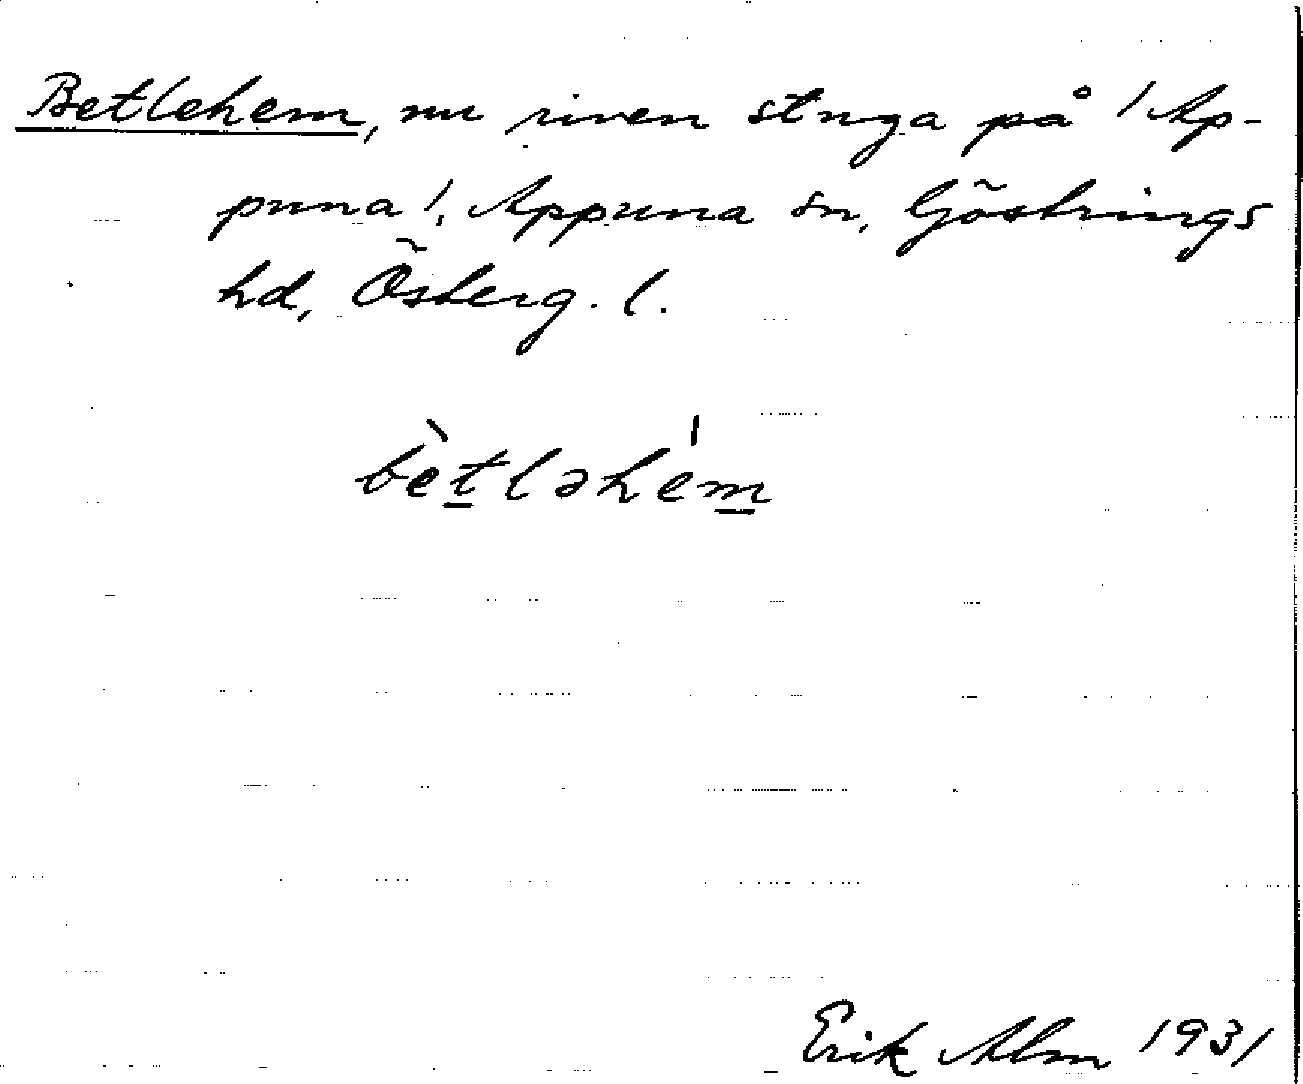 Betlehem, nu riven stuga på /Ap-
puna/, Appuna sn, Göstrings
hd, Österg. l.
bètləhem
Erik Alm 1931